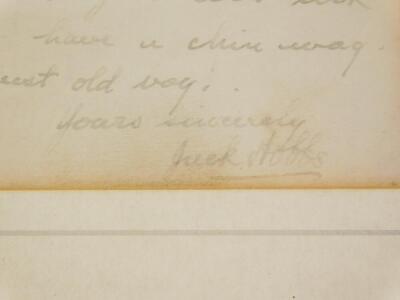 have a chin wag.
old boy.
Yours sincerely
Jack Hobbs